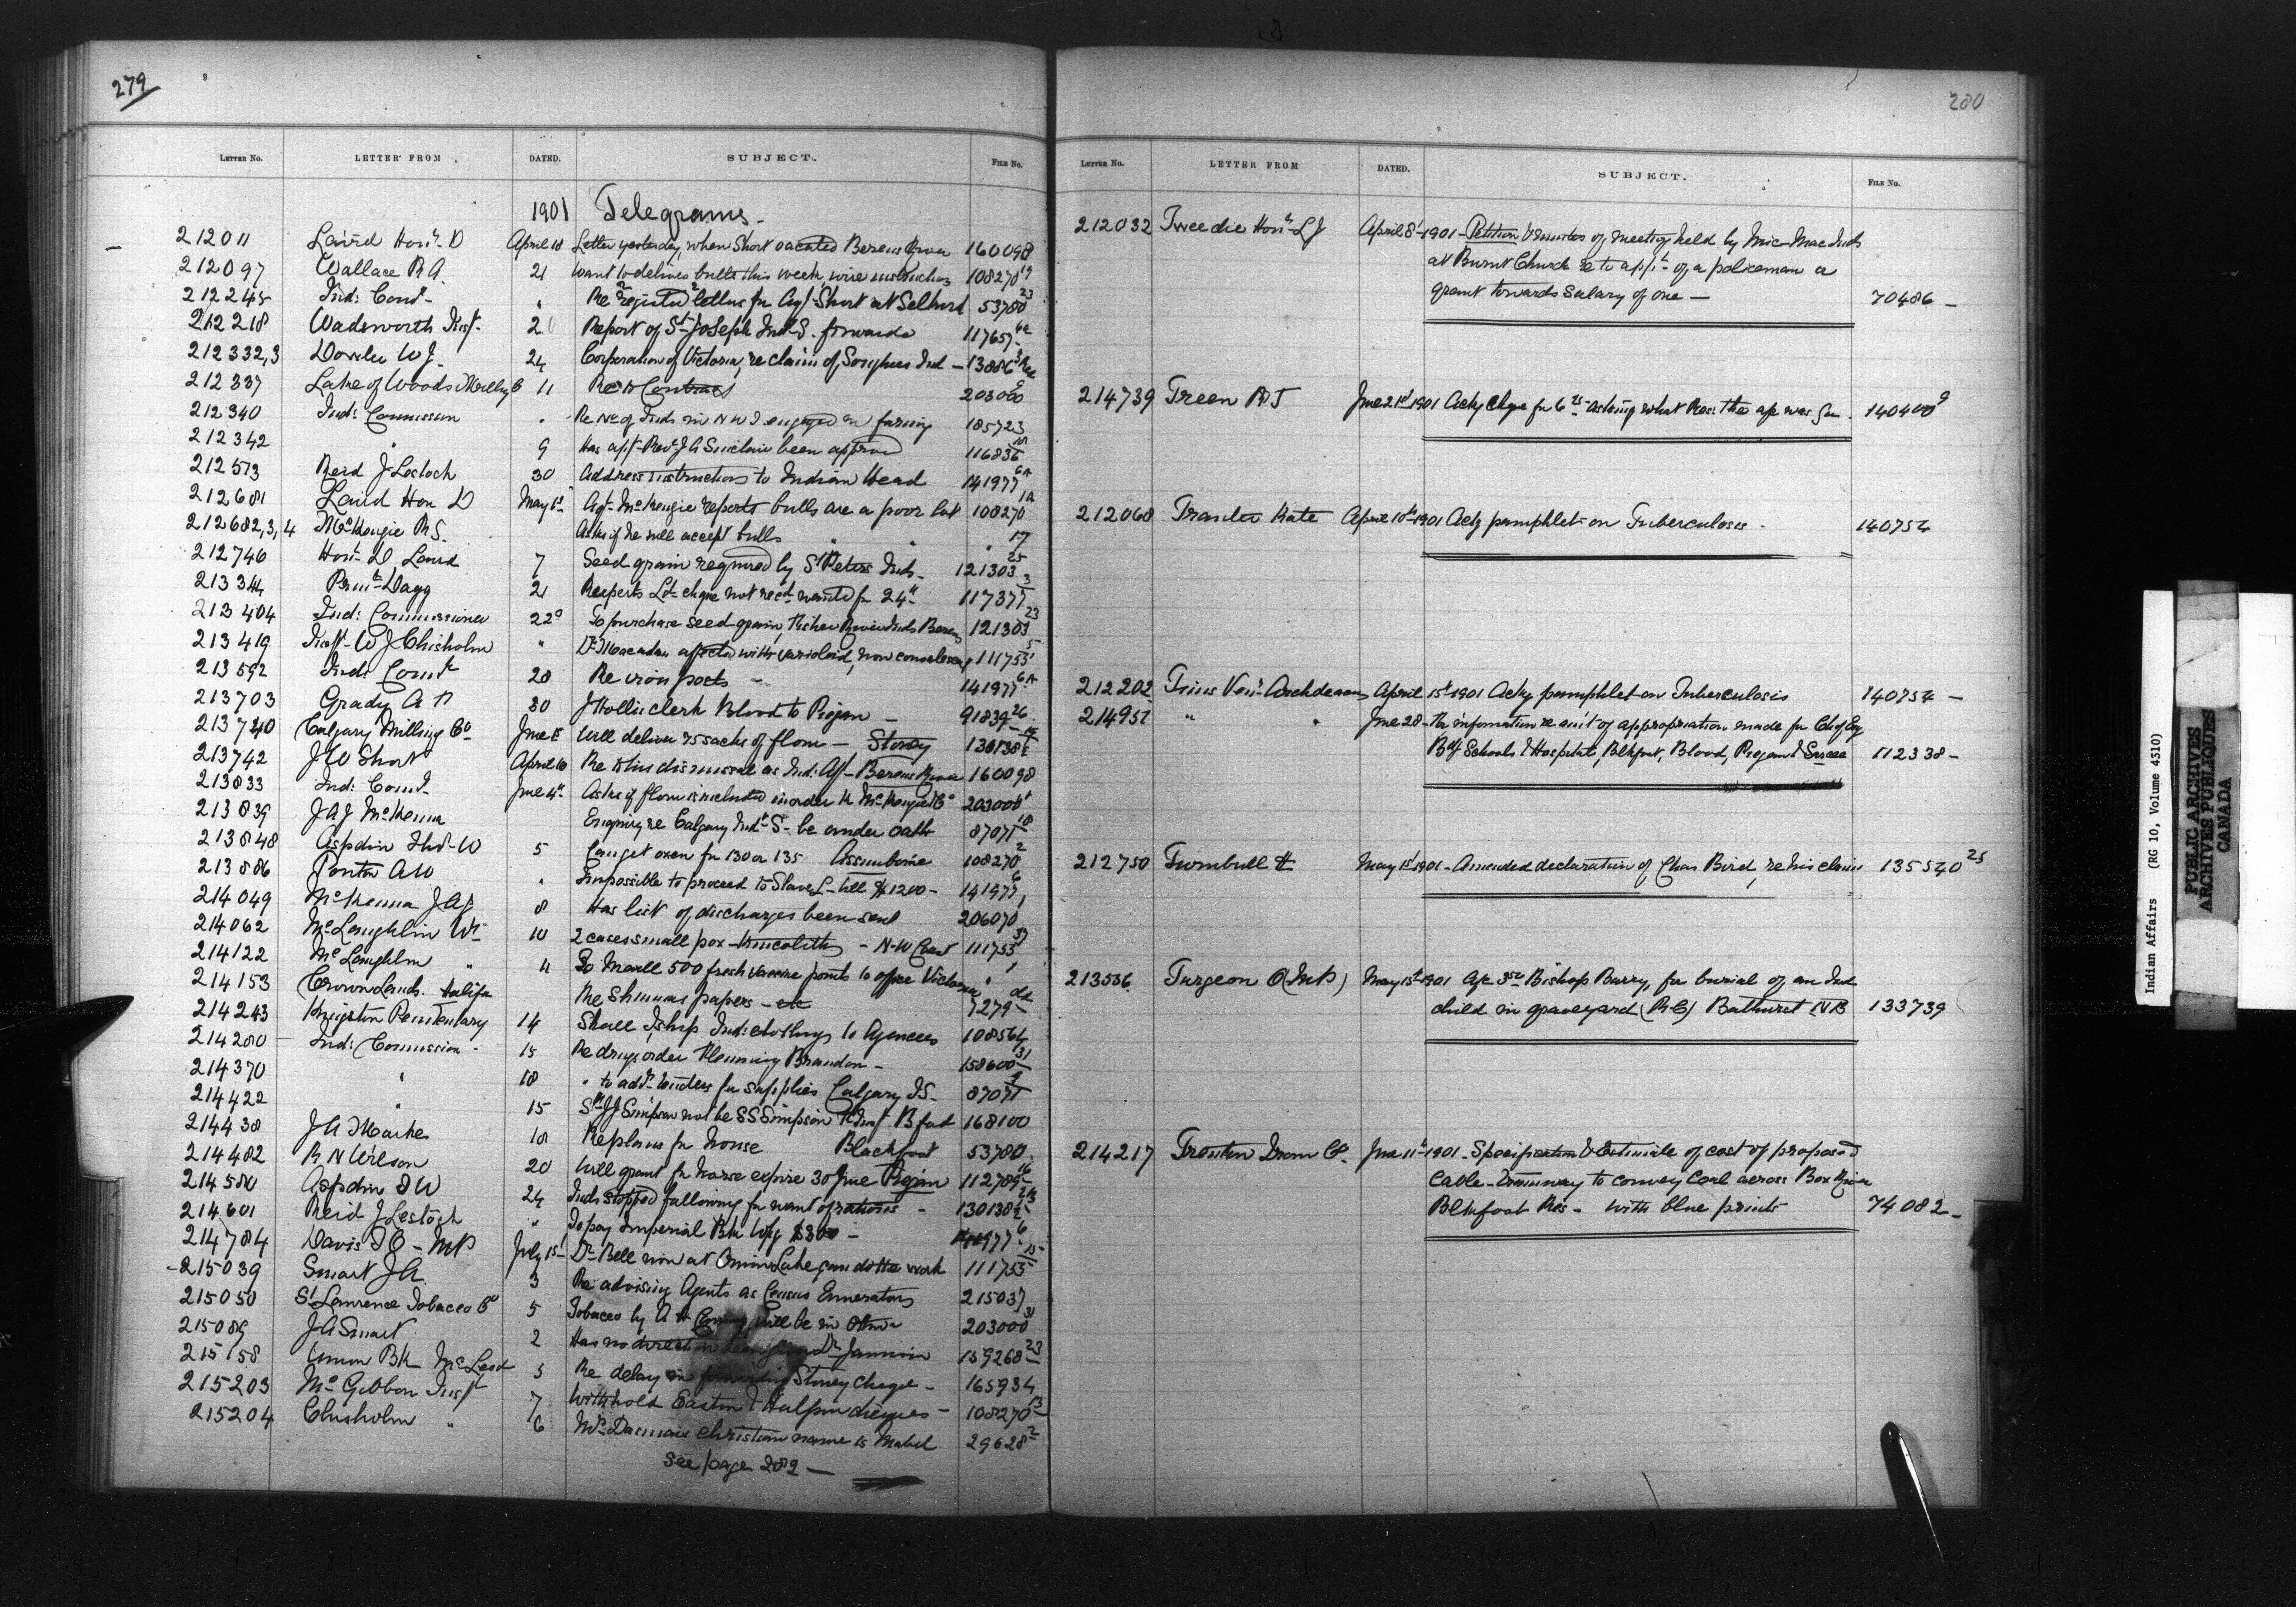 279
LETTER No. LETTER FROM DATED. SUBJECT. FILE No.
1901 Telegrams.
212011 Laird Hon. D April 18 Letter yesterday, when Short vacated Berens River 160098
212097 Wallace R A. 21 Want to deliver bulls this week, wire instructions 108270 19
212245 Ind: Comr " Re 2 registered letters for Agt Short at Selkirk 53780 23
212218 Wadsworth Inspr. 20 Report of St Joseph Ind S. forwards 117657 6a
212332,3 Dowler W J. 24 Corporation of Victoria, re claim of Songhees Ind - 13886
212337 Lake of Woods Milling Co 11 Re Contract 203000 9
212340 Ind: Commission " Re No of Inds in N W T engaged in farming 185723
212342 " 9 Has appt Revd J A Sinclair been approved 116836
212513 Reid J Lestock 30 Address instructions to Indian Head 141977 6A
212681 Laird Hon D May 1st Agt McKenzie reports bulls are a poor lot 108270 1A
212682,3,4 McKenzie R S. Asks if he will accept bulls " " " 17
212746 Hon. D Laird 7 Seed grain required by St Peters Inds - 121303 25
213344 Dagg 21 Reesperts Ld cheque not recd wanted for 24th 117377 3
213404 Ind: Commissioner 22d To purchase seed grain, Fisher River Inds Berens 121303 23
213419 Inspr W J Chisholm " Dr Macadam affected with varioloid, now convalescent 111755 5
213592 Ind: Comr 28 Re iron posts - 141977 6A
213703 Grady A P 30 J Hollis clerk Blood to Piegan - 91839 26
213740 Calgary Milling Co June 1st Will deliver 75 sacks of flour - Stoney 130138
213742 J W Short April 16 Re his dismissal as Ind: Agt - Berens River 160098
213833 Ind: Comr June 4th Asks if flour is included in order to McKenzie & Co 203000 1
213839 J A J McKenna Enquiry re Calgary Indl S - be under oath 87071 18
213848 Aspdin Thos W 5 Can get oxen for 130 or 135 Assiniboine 108270 2
213886 Ponton A W " Impossible to proceed to Slave L - till $1200 - 141977 6
214049 McKenna J A J 8 Has list of discharges been sent 206070 1
214062 McLaughlin Wm 10 2 cases small pox - Kincolith - N-W Coast 111755 37
214122 McLaughlin " 11 To Mail 500 fresh vaccine points to office Victoria " 1
214153 Crown Lands. Halifax Re Shimmas papers - etc 7279
214243 Kingston Penitentiary 14 Shall I ship Ind: clothing to Agencies 108564
214280 Ind: Commission - 15 Re drugs order Fleming Brandon - 158600 31
214370 " 18 " to advts tenders for supplies Calgary I S - 87071 9
214422 " 15 Sd J J Simpson not be S S Simpson Bfast 168100
214438 J A Markle 18 Re plans for house Blackfoot 53780
214482 R N Wilson 20 Will grant for nurse expire 30 June Piegan 112789 16
214580 Aspdin T W 24 Inds stopped fallowing for want of rations - 130138
214601 Reid J Lestock " To pay Imperial Bk Wpg $300 - 141977 6
214784 Davis T O - MP July 15 Dr Bell now at Onion Lake can do the work 111755 15
215039 Smart J A. 3 Re advising Agents as Census Enumerators 215037
215050 St Lawrence Tobacco Co 5 Tobacco by A H will be in Ottawa 203000 31
215089 J A Smart 2 Has no direction Dr Jamison 159268 23
215158 Union Bk McLeod 3 Re delay in forwarding Stoney cheque - 165934
215203 McGibbon Inspr 7 Withhold Easton & Halpin cheques - 108270 13
215204 Chisholm " 6 Mrs Dasmais christian name is Mabel 29628 2
See page 282 -
280
LETTER No. LETTER FROM DATED. SUBJECT. FILE No.
212032 Tweedie Hon. L J April 8th 1901 - Petition & minutes of meeting held by Mic Mac Inds
at Burnt Church re to appt of a policeman &
grant towards salary of one - 70486 -
214739 Treen R J June 21st 1901 Ackg chque for 6 asking what Res: the was for 140400 9
212068 Franter Kate April 10th 1901 Ackg pamphlet on Tuberculosis - 140754
212202 Tims Ven. Archdeacon April 15th 1901 Ackg pamphlet on Tuberculosis 140754 -
214951 " " June 28 - For information re amt of appropriation made for Ch of Eng
Bdg Schools & Hospital, Blkfoot, Blood, Piegan & Sarcee 112338 -
212750 Turnbull H May 1st 1901 - Amended declaration of Chas Bird, re his claim 135540 25
213536. Turgeon O (MP) May 15th 1901 Bishop Barry, for burial of an Ind
child in graveyard (R.C.) Bathurst NB 133739
214217 Trenton Iron Co. June 11th 1901 - Specification & Estimate of cost of proposed
cable - tramway to convey Coal across Bow River
Blkfoot Res - with blue prints 74082 -
Indian Affairs (RG 10, Volume 4310)
PUBLIC ARCHIVES
ARCHIVES PUBLIQUES
CANADA